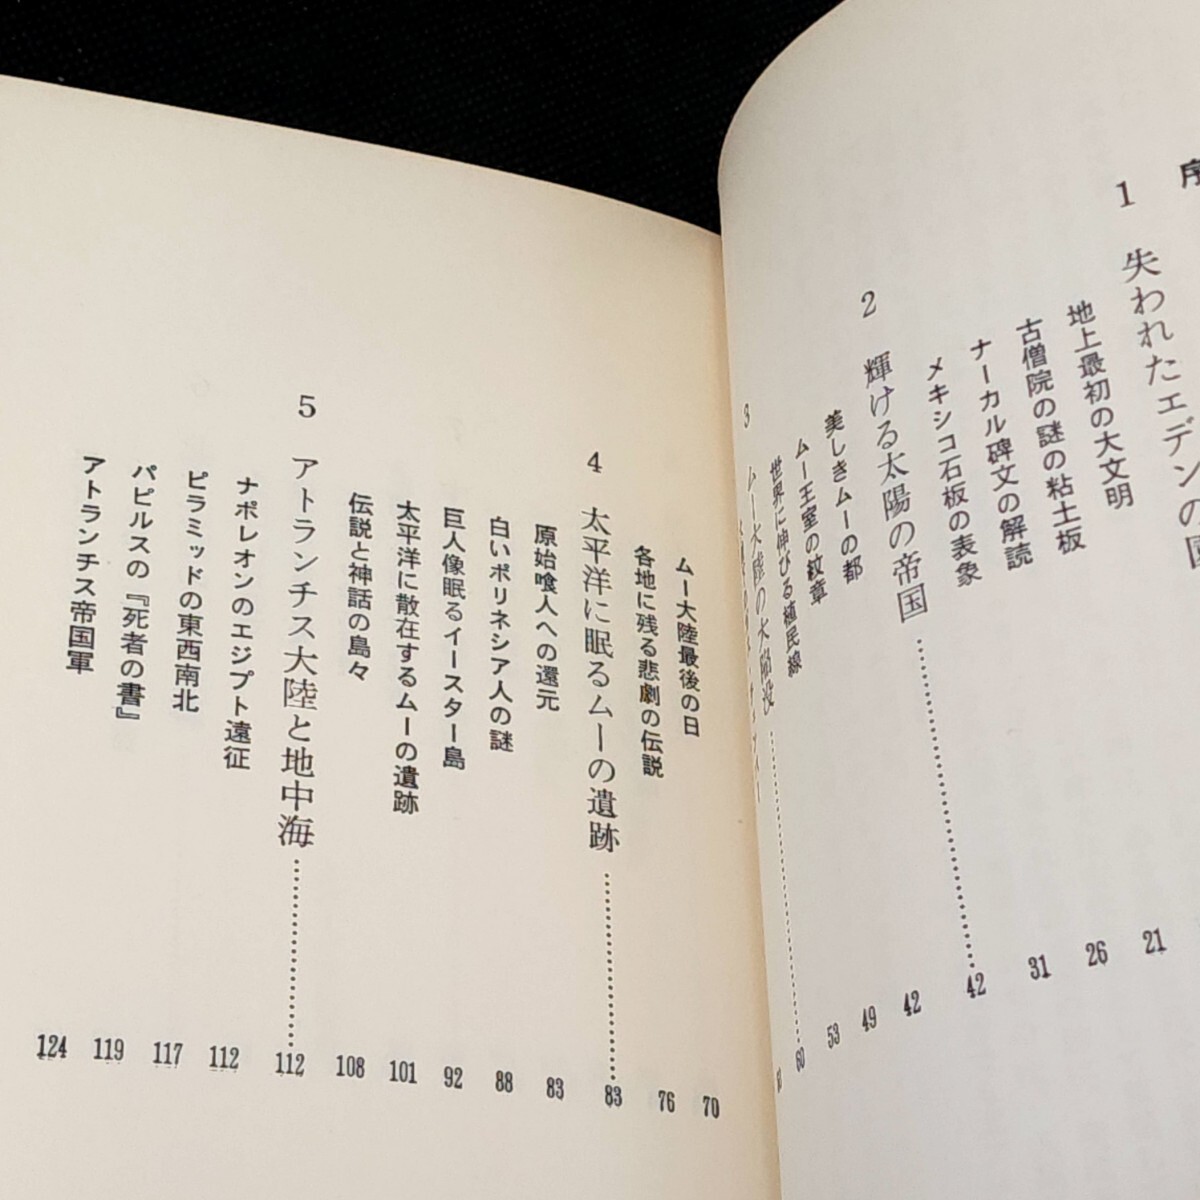 1 失われたエデンの
地上最初の大文明 21
古僧院の謎の粘土板 26
ナーカル碑文の解読 31
メキシコ石板の表象
2 輝ける太陽の帝国 42
美しきムーの都 42
ムー王室の紋章 49
世界に伸びる植民線 53
3 ムー大陸の大陥没 60
ムー大陸最後の日 70
各地に残る悲劇の伝説 76
4 太平洋に眠るムーの遺跡 83
原始喰人への還元 83
白いポリネシア人の謎 88
巨人像眠るイースター島 92
太平洋に散在するムーの遺跡 101
伝説と神話の島々 108
5 アトランチス大陸と地中海 112
ナポレオンのエジプト遠征 112
ピラミッドの東西南北 117
パピルスの『死者の書』 119
アトランチス帝国軍 124